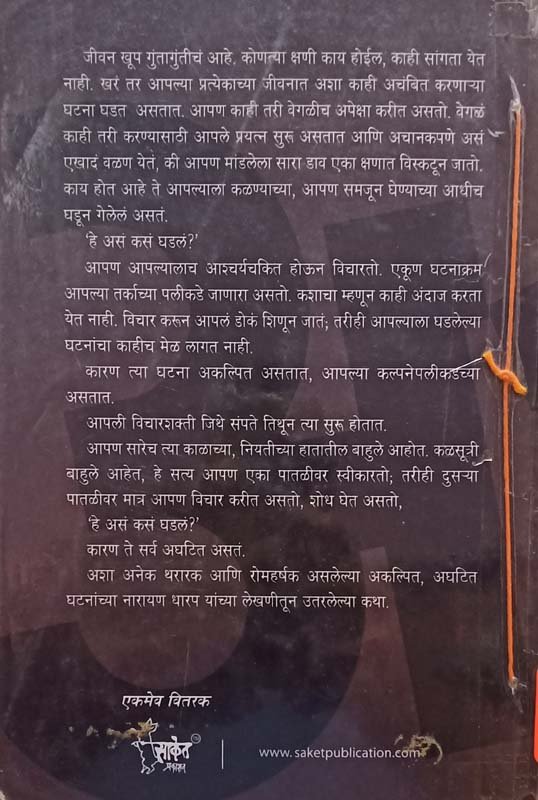 जीवन खूप गुंतागुंतीचं आहे. कोणत्या क्षणी काय होईल, काही सांगता येत
नाही. खरं तर आपल्या प्रत्येकाच्या जीवनात अशा काही अचंबित करणाऱ्या
घटना घडत असतात. आपण काही तरी वेगळीच अपेक्षा करीत असतो. वेगळं
काही तरी करण्यासाठी आपले प्रयत्न सुरू असतात आणि अचानकपणे असं
एखादं वळण येतं, की आपण मांडलेला सारा डाव एका क्षणात विस्कटून जातो.
काय होत आहे ते आपल्याला कळण्याच्या, आपण समजून घेण्याच्या आधीच
घडून गेलेलं असतं.
‘हे असं कसं घडलं?’
आपण आपल्यालाच आश्चर्यचकित होऊन विचारतो. एकूण घटनाक्रम
आपल्या तर्काच्या पलीकडे जाणारा असतो. कशाचा म्हणून काही अंदाज करता
येत नाही. विचार करून आपलं डोकं शिणून जातं; तरीही आपल्याला घडलेल्या
घटनांचा काहीच मेळ लागत नाही.
कारण त्या घटना अकल्पित असतात, आपल्या कल्पनेपलीकडच्या
असतात.
आपली विचारशक्ती जिथे संपते तिथून त्या सुरू होतात.
आपण सारेच त्या काळाच्या, नियतीच्या हातातील बाहुले आहोत. कळसूत्री
बाहुले आहेत, हे सत्य आपण एका पातळीवर स्वीकारतो; तरीही दुसऱ्या
पातळीवर मात्र आपण विचार करीत असतो, शोध घेत असतो,
‘हे असं कसं घडलं?’
कारण ते सर्व अघटित असतं.
अशा अनेक थरारक आणि रोमहर्षक असलेल्या अकल्पित, अघटित
घटनांच्या नारायण धारप यांच्या लेखणीतून उतरलेल्या कथा.
एकमेव वितरक
साकेत
प्रकाशन
www.saketpublication.com